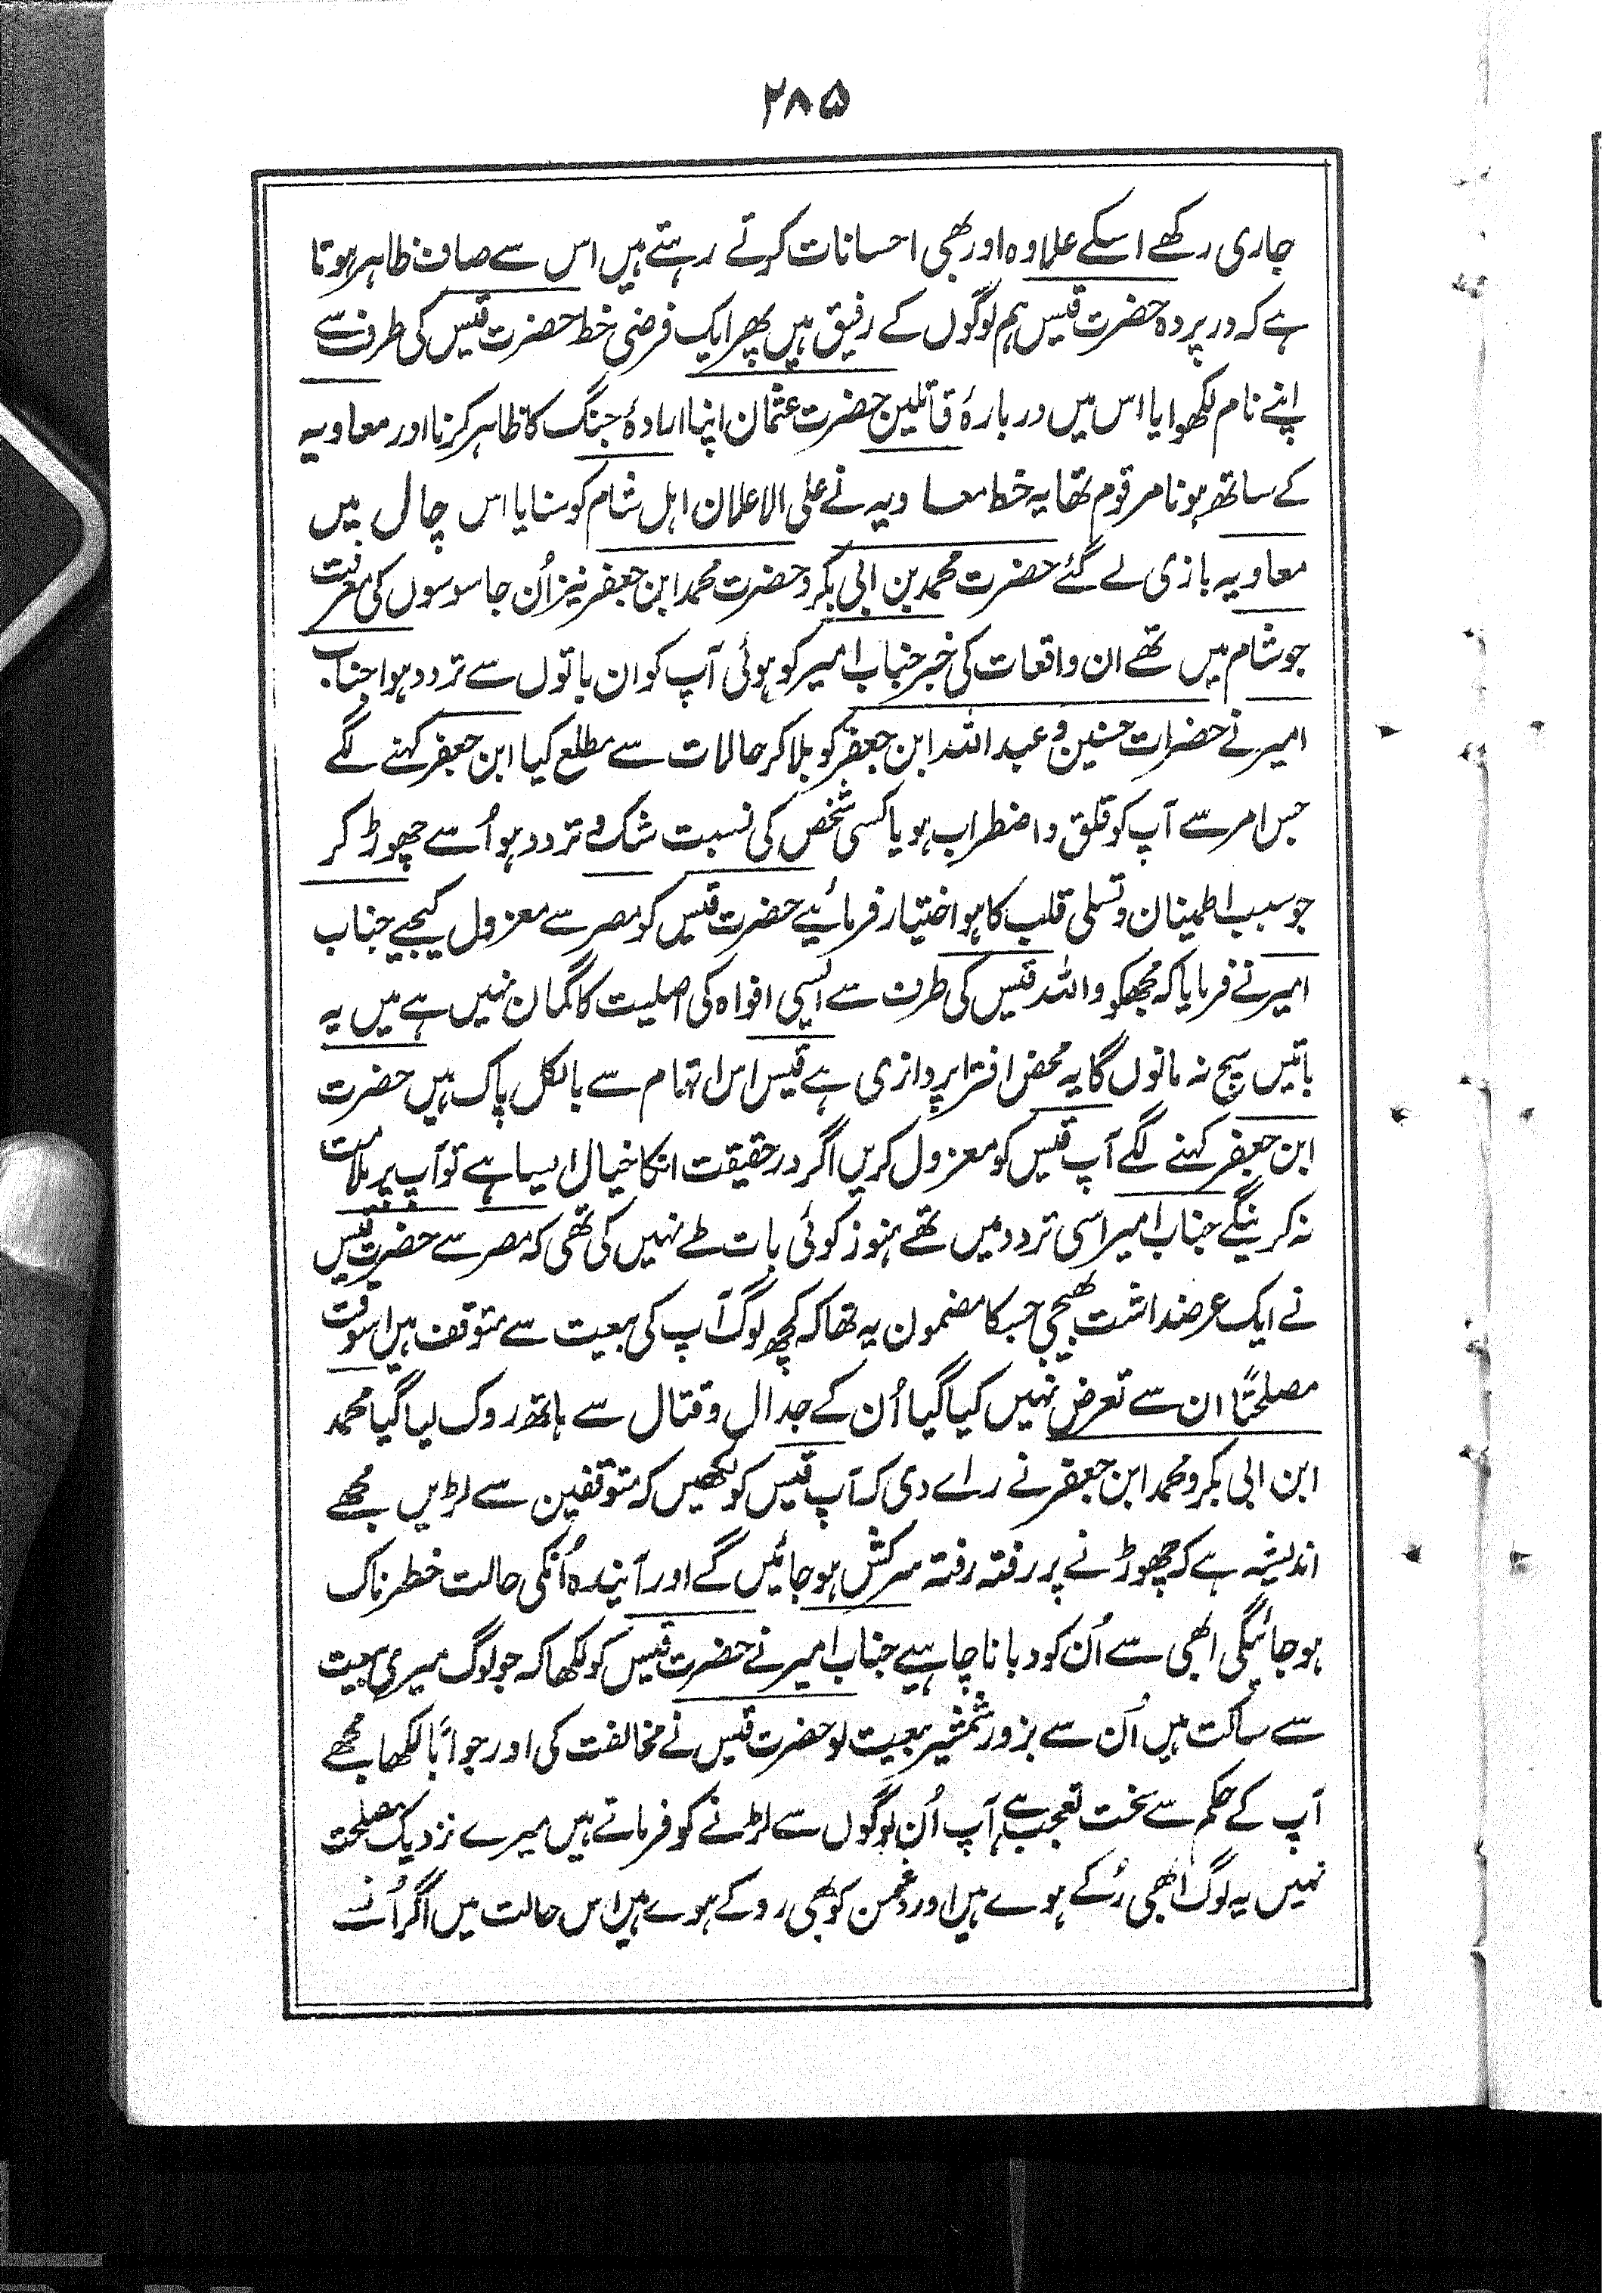 ۲۸۵
جاری رکھے اسکے علاوہ اور بھی احسانات کرتے رہتے ہیں اس سے صاف ظاہر ہوتا
ہے کہ در پردہ حضرت قیس ہم لوگوں کے رفیق ہیں پھر ایک فرضی خط حضرت قیس کی طرف سے
اپنے نام لکھوایا اس میں دربارۂ قاتلین حضرت عثمان اپنا ارادۂ جنگ کا ظاہر کرنا اور معاویہ
کے ساتھ ہونا مرقوم تھا یہ خط معاویہ نے علی الاعلان اہل شام کو سنایا اس چال میں
معاویہ بازی لے گئے حضرت محمد بن ابی بکر و حضرت محمد ابن جعفر نیز اُن جاسوسوں کی معرفت
جو شام میں تھے ان واقعات کی خبر جناب امیر کو ہوئی آپ کو ان باتوں سے تردد ہوا جناب
امیر نے حضرات حسنین و عبد اللہ ابن جعفر کو بلا کر حالات سے مطلع کیا ابن جعفر کہنے لگے
جس امر سے آپ کو قلق و اضطراب ہو یا کسی شخص کی نسبت شک و تردد ہو اُسے چھوڑ کر
جو سبب اطمینان و تسلی قلب کا ہو اختیار فرمائیے حضرت قیس کو مصر سے معزول کیجیے جناب
امیر نے فرمایا کہ مجھکو واللہ قیس کی طرف سے ایسی افواہ کی اصلیت کا گمان نہیں ہے میں یہ
باتیں سچ نہ مانوں گا یہ محض افترا پردازی ہے قیس اس اتہام سے بالکل پاک ہیں حضرت
ابن جعفر کہنے لگے آپ قیس کو معزول کریں اگر در حقیقت انکا خیال ایسا ہے تو آپ پر ملامت
نہ کرینگے جناب امیر اسی تردد میں تھے ہنوز کوئی بات طے نہیں کی تھی کہ مصر سے حضرت قیس
نے ایک عرضداشت بھیجی جسکا مضمون یہ تھا کہ کچھ لوگ آپ کی بیعت سے متوقف ہیں اسوقت
مصلحتًا ان سے تعرض نہیں کیا گیا اُن کے جدال و قتال سے ہاتھ روک لیا گیا محمد
ابن ابی بکر و محمد ابن جعفر نے راے دی کہ آپ قیس کو لکھیں کہ متوقفین سے لڑیں مجھے
اندیشہ ہے کہ چھوڑنے پر رفتہ رفتہ سرکش ہو جائیں گے اور آیندہ اُنکی حالت خطرناک
ہو جائیگی ابھی سے اُن کو دبانا چاہیے جناب امیر نے حضرت قیس کو لکھا کہ جو لوگ میری بیعت
سے ساکت ہیں اُن سے بزور شمشیر بیعت لو حضرت قیس نے مخالفت کی اور جواباً لکھا مجھے
آپ کے حکم سے سخت تعجب ہے آپ اُن لوگوں سے لڑنے کو فرماتے ہیں میرے نزدیک مصلحت
نہیں یہ لوگ ابھی رُکے ہوے ہیں اور دشمن کو بھی روکے ہوے ہیں اس حالت میں اگر اُنسے